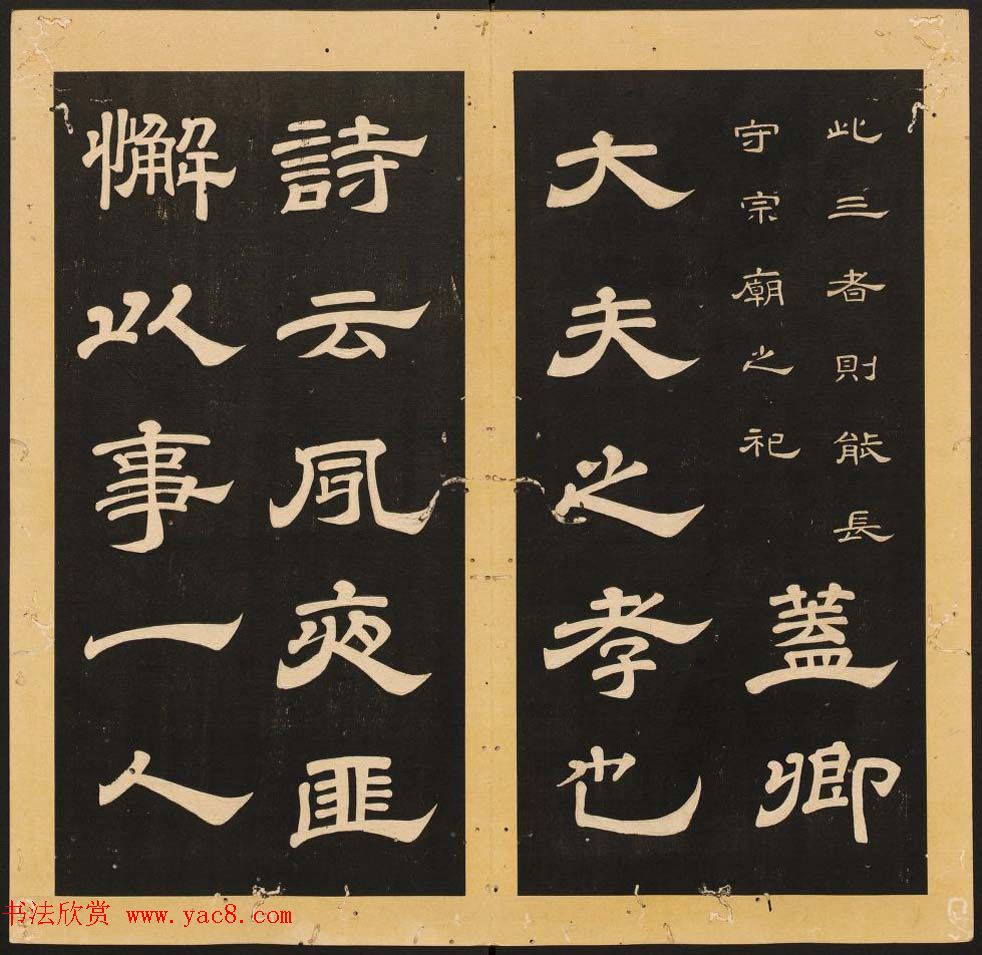 此三者則能長
守宗廟之祀
蓋卿
大夫之孝也
詩云夙夜匪
懈以事一人
书法欣赏 www.yac8.com